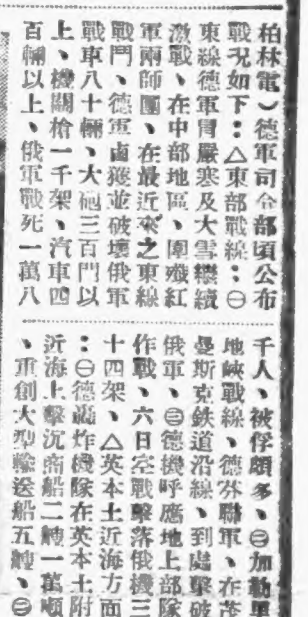 柏林電）德軍司令部頃公布
戰况如下：△東部戰線：㊀
東線德軍冒嚴寒及大雪繼續
激戰、在中部地區、圍殲紅
軍兩師團、在最近來之東線
戰鬥、德軍鹵獲並破壞俄軍
戰車八十輛、大砲三百門以
上、機關槍一千架、汽車四
百輛以上、俄軍戰死一萬八
千人、被俘頗多、㊁加勒里
地峽戰線、德芬聯軍、在茂
曼斯克鉄道沿線、到處擊破
俄軍、㊂德機呼應地上部隊
作戰、六日空戰擊落俄機三
十四架、△英本土近海方面
：㊀德轟炸機隊在英本土附
近海上擊沉商船二艘一萬噸
、重創大型輸送船五艘、㊁